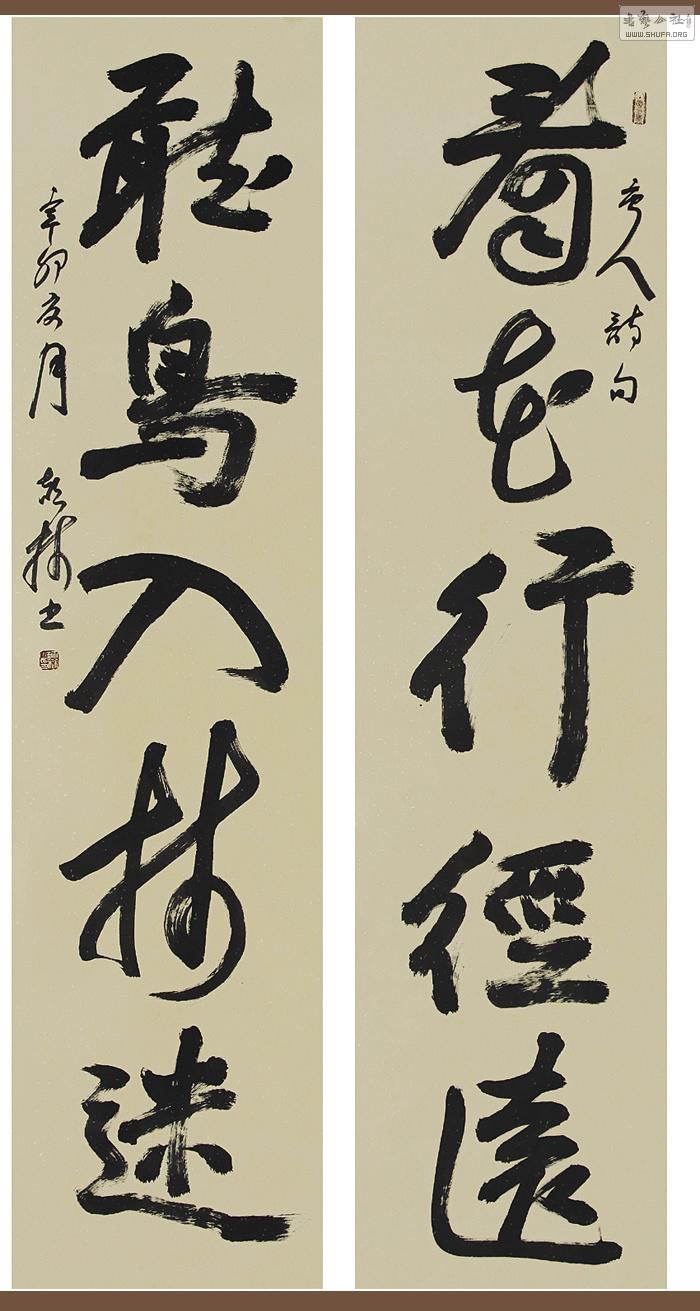 書藝公社
WWW.SHUFA.ORG
看花行徑遠
人詩句
聽鳥入林迷
辛卯夏月 林书